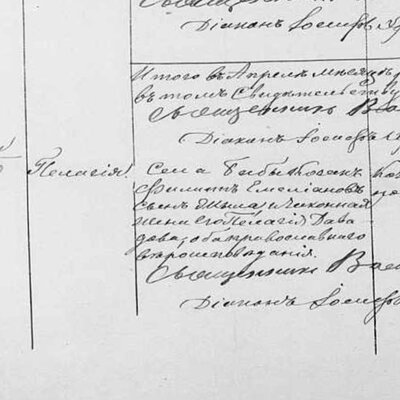 Діаконъ Іосифъ
Итого въ Апрелѣ мѣсяцѣ
въ томъ Свидѣтельствуемъ
Священникъ Ва
Діаконъ Іосифъ
Пелагія
Села Козакъ
Филиппъ Емеліановъ
сынъ и законная
жена его Пелагія Дави
дова, оба православнаго
вѣроисповѣданія.
Священникъ Вас
Діаконъ Іосиф